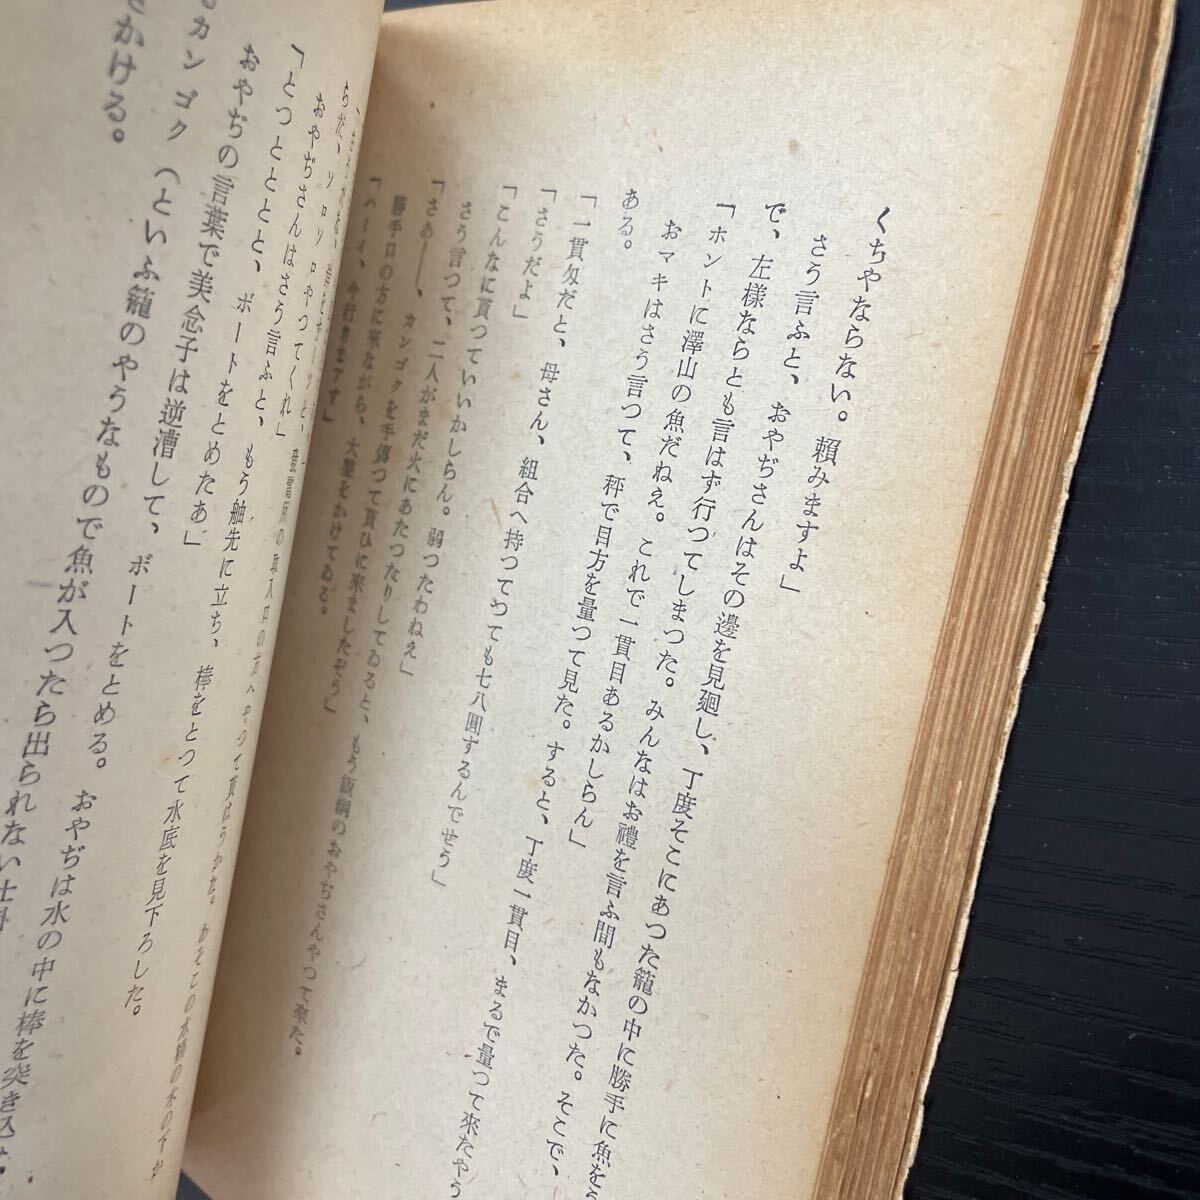 くちやならない。賴みますよ」
さう言ふと、おやぢさんはその邊を見廻し、丁度そこにあつた籠の中に勝手に魚を
で、左樣ならとも言はず行つてしまつた。みんなはお禮を言ふ間もなかつた。そこで、
「ホントに澤山の魚だねえ。これで一貫目あるかしらん」
おマキはさう言つて、秤で目方を量つて見た。すると、丁度一貫目、まるで量つて來たやう
ある。
「一貫匁だと、母さん、組合へ持つてつても七八圓するんでせう」
「さうだよ」
「こんなに貰つていいかしらん。弱つたわねえ」
さう言つて、二人がまだ火にあたつたりしてゐると、もう鈑網のおやぢさんやつて來た。
「さあ――、カンゴクを手傳つて貰ひに來ましたぞう」
勝手口の方に來ながら、大聲をかけてゐる。
「ハーイ、今行きまアす」
らだ、ソロソロやつてくれ」
おやぢさんはさう言ふと、もう舳先に立ち、棒をとつて水底を見下ろした。
「とつととと、ボートをとめたあ」
おやぢの言葉で美念子は逆漕して、ボートをとめる。おやぢは水の中に棒を突き込
カンゴク（といふ籠のやうなもので魚が入つたら出られない仕掛
かける。